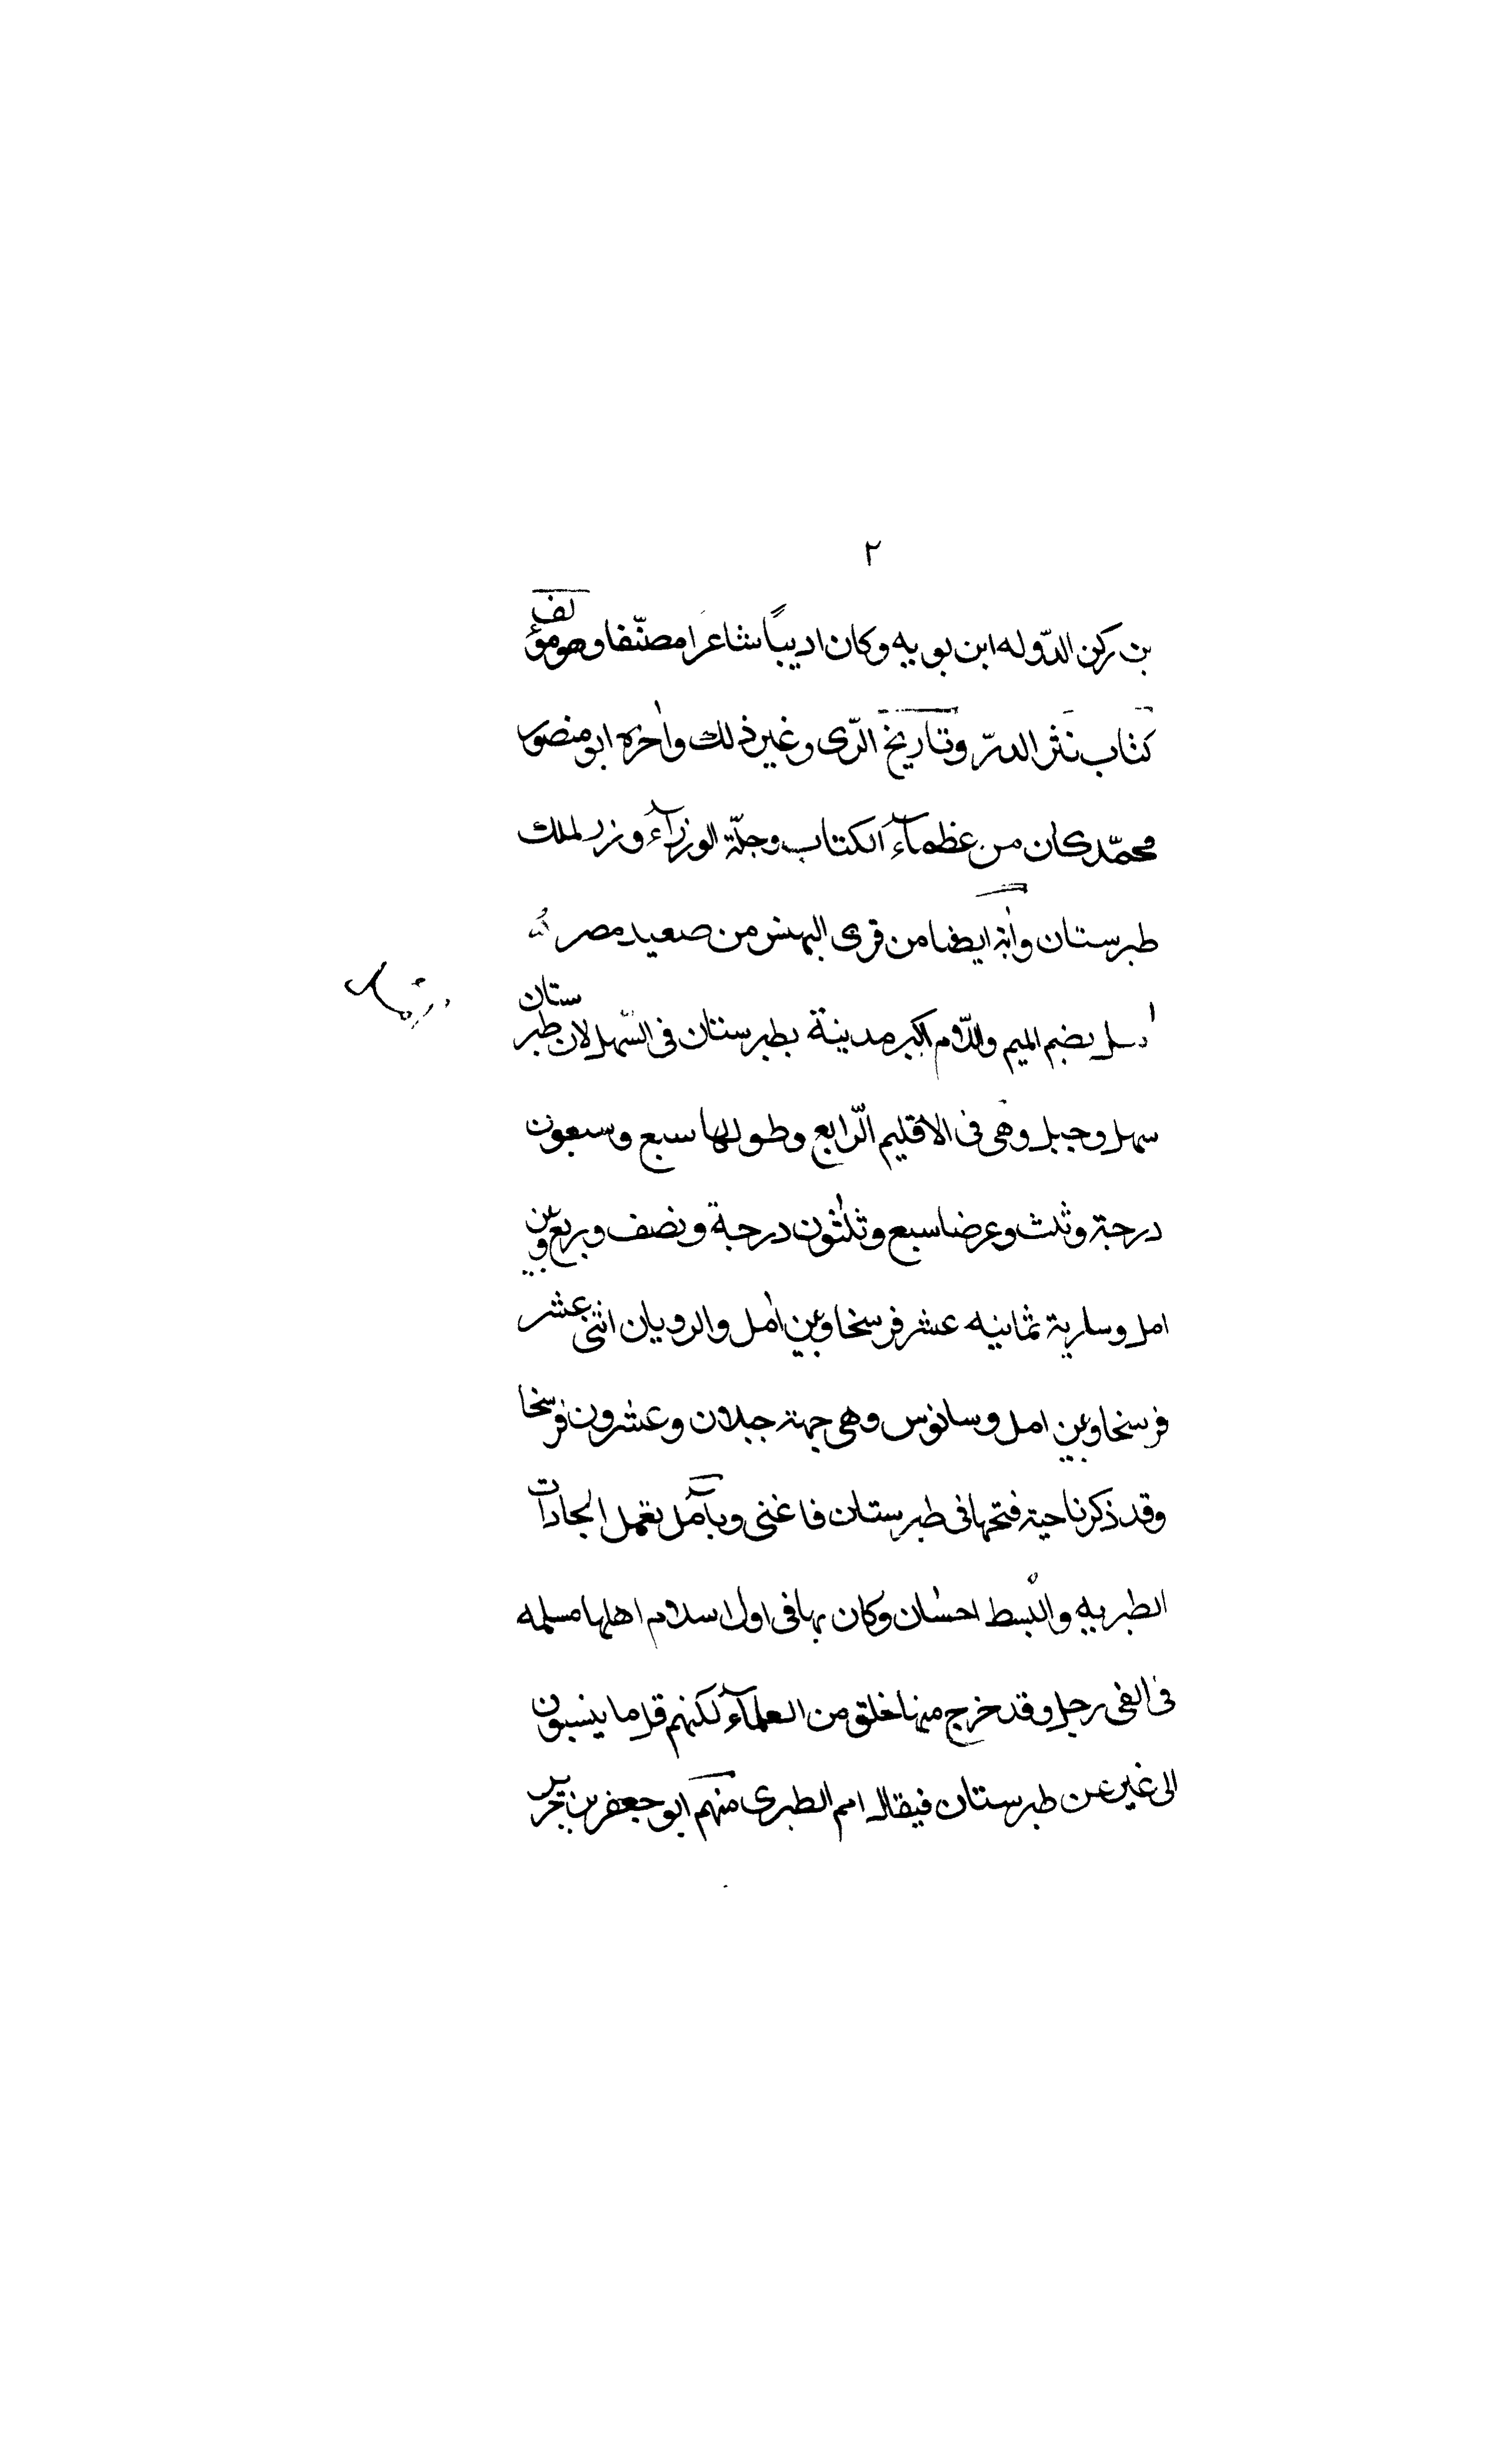 ٢
بن ركن الدّوله ابن بويه وكان اديبًا شاعرا مصنّفا وهو مؤلف
كتاب نثر الدرّ وتاريخ الرّى وغير ذلك واخره ابو منصور
محمّد كان من عظمآء الكتاب وجلّة الوزرآء وزر لملك
طبرستان وآبة ايضا من قرى البهنس من صعيد مصر
امل بضم الميم واللّام اكبر مدينة بطبرستان فى السّهل لان طبرستان
سهل وجبل وهى فى الاقليم الرّابع وطولها سبع وسبعون
درجة وثلث وعرضا سبع وثلثون درجة ونصف وربع وبين
امل وسارية ثمانيه عشر فرسخا وبين امل والرويان اثنى عشر
فرسخا وبين امل وسالوس وهى جهة جيلان وعشرون فرسخا
وقد ذكرنا حية فتحها فى طبرستان فاغنى وبآمل تعمل السجادات
الطبريه والبسط الحسان وكان بها فى اول اسلام اهلها مسلمه
فى الفى رجل وقد خرج منها خلق من العلمآء لكنهم قل ما ينسبون
الى غير عن طبرستان فيقال لهم الطبرى منهم ابو جعفر بن جرير